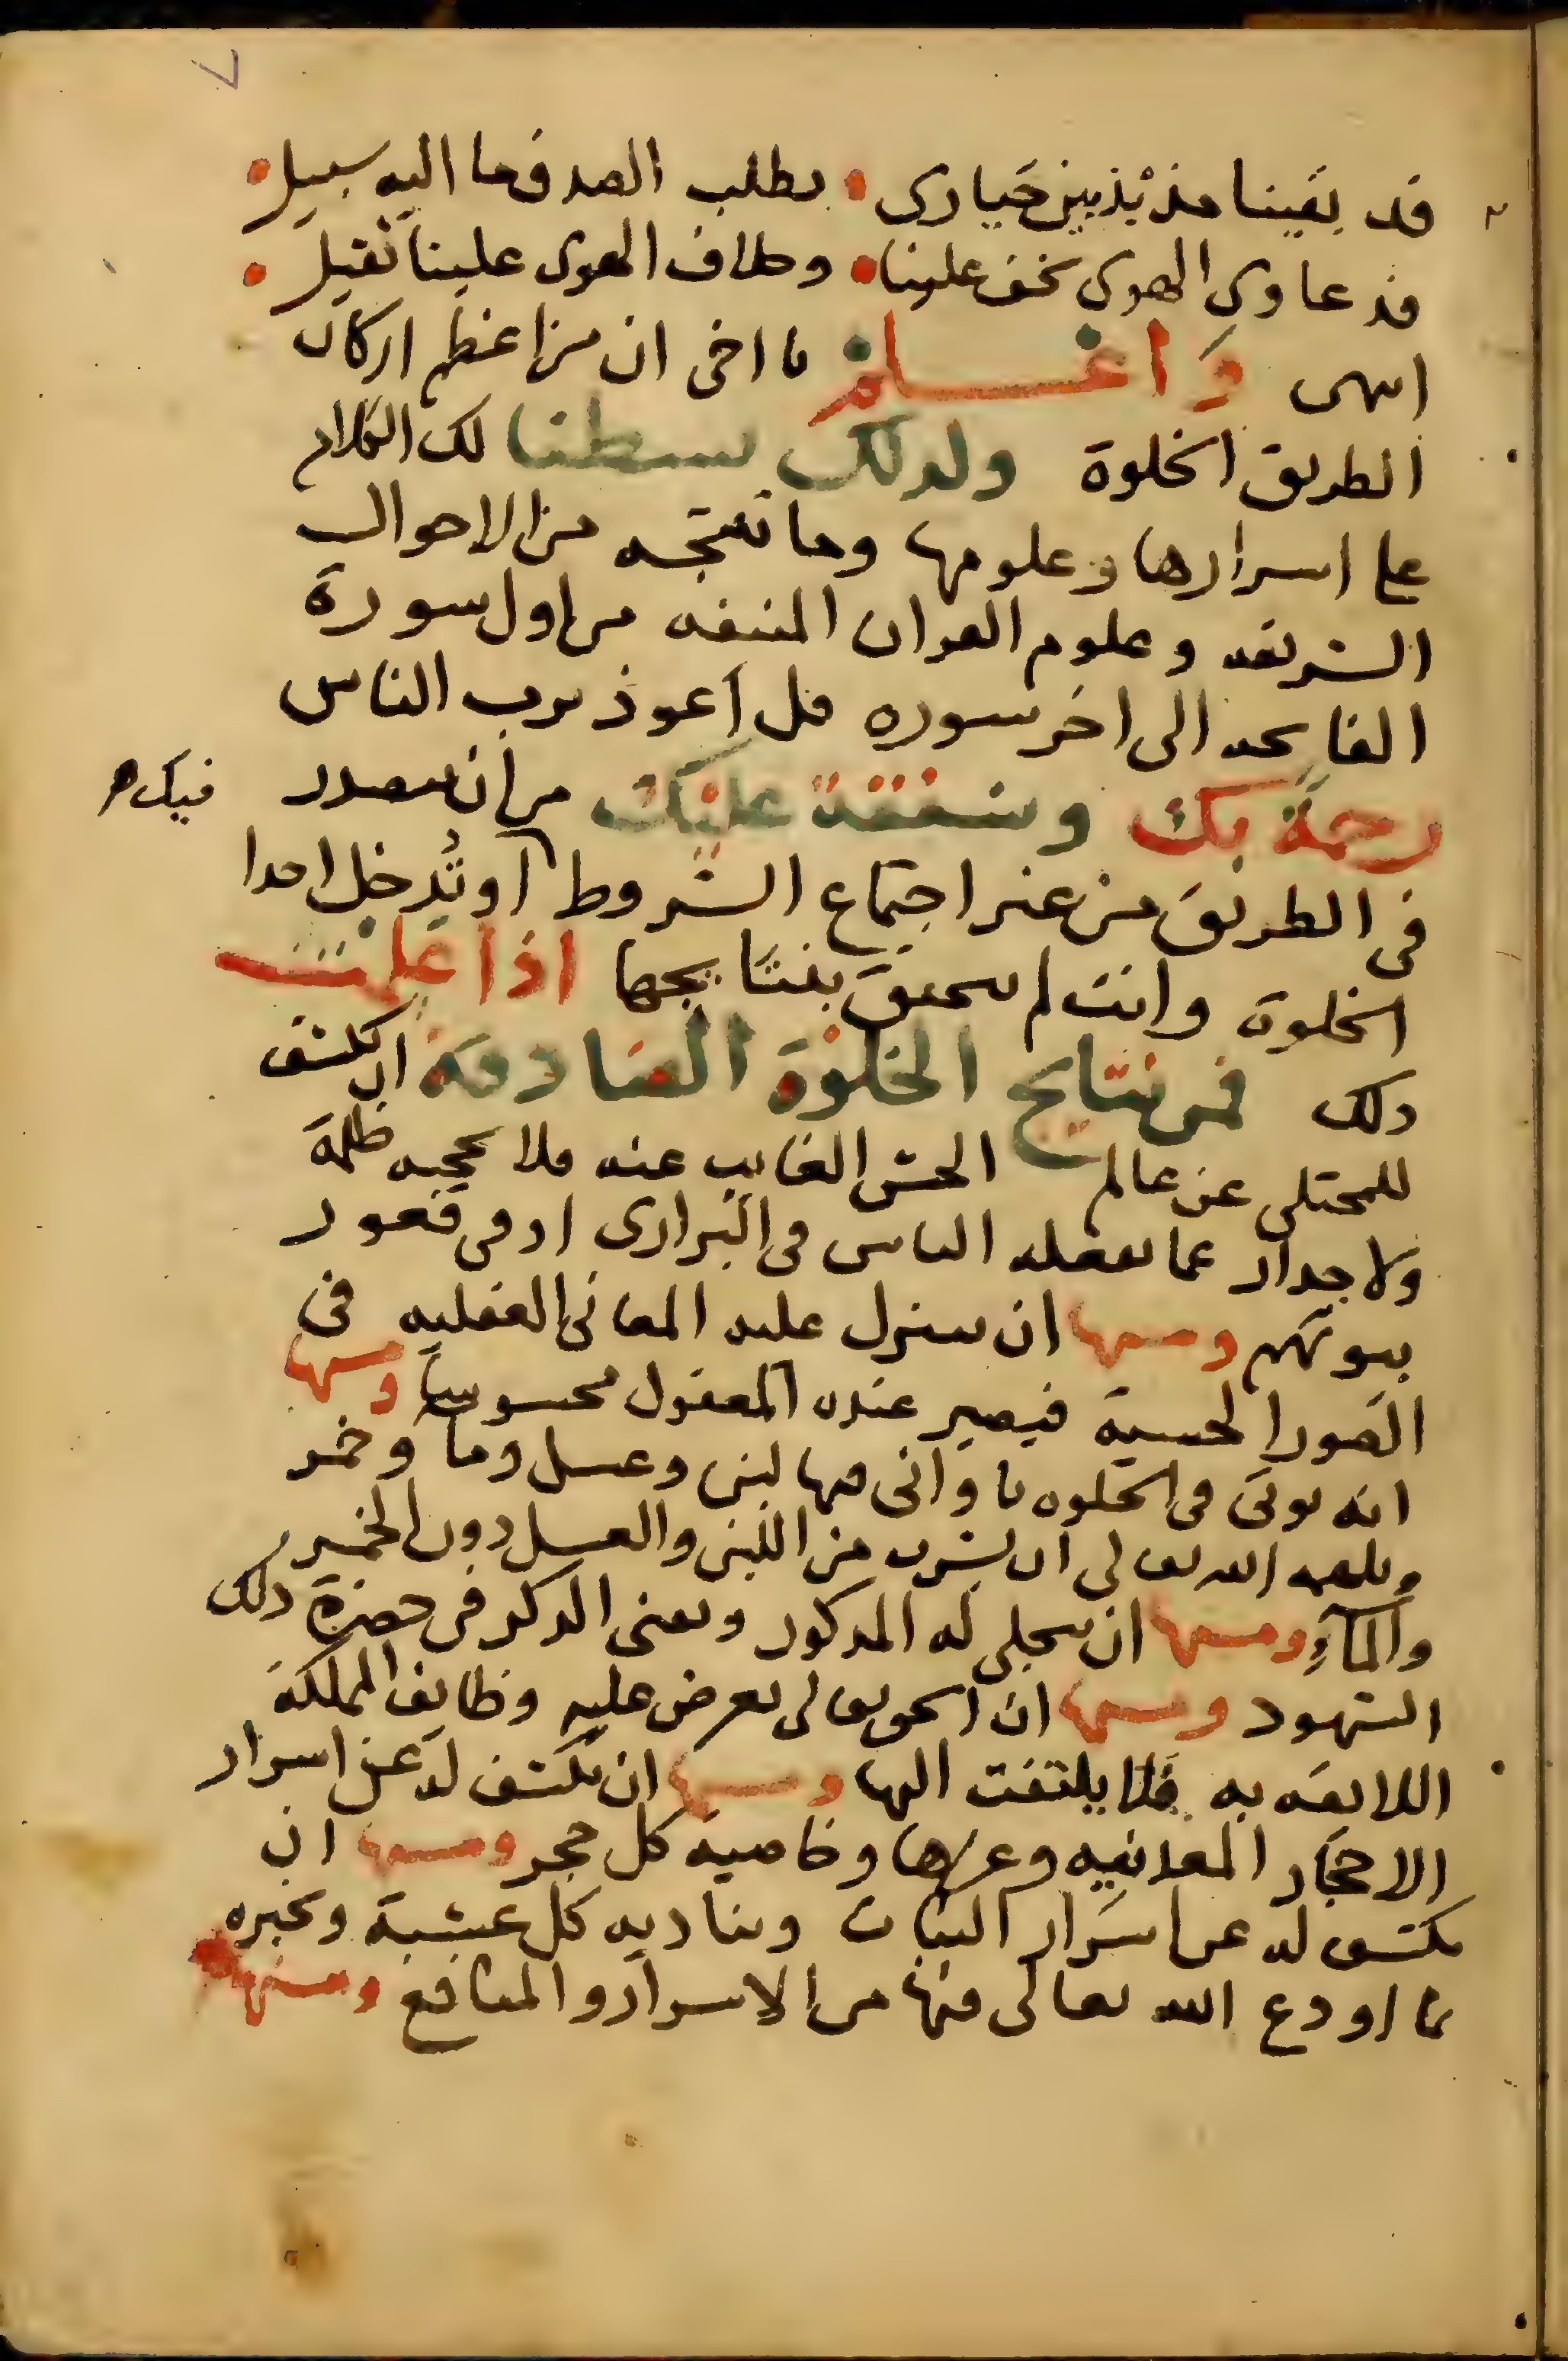 ٧
قد بقينا مذبذبين حيارى • نطلب الصدق ما اليه سبيل •
فدعاوى الهوى تخف علينا • وخلاف الهوى علينا ثقيل •
انتهى وَاعْـــلَمْ يا اخى ان من اعظم اركان
الطريق الخلوة ولذلك بسطنا لك الكلام
على اسرارها وعلومها وما تنتجه من الاحوال
الشريفه وعلوم القران المنيفه من اول سورة
الفاتحه الى اخر سوره قل اعوذ برب الناس
رحمةً بك وشفقة عليك من ان تتصدر فيك
فى الطريق من غير اجتماع الشروط او تُدخل احدا
الخلوة وانت لم تتحقق بنتايجها اذا علمت
ذلك فمن نتايج الخلوة الصادقة ان يكشف
للمختلى عن عالم الحس الغايب عنه فلا يحجبه ظلمة
ولا جدار عما يفعله الناس فى البرارى او فى قعور
بيوتهم ومنها ان تتنزل عليه المعانى العقليه فى
الصور الحسية فيصير عنده المعقول محسوسا ومنها
انه يوتى فى الخلوه باوانى فيها لبن وعسل وما وخمر
ويلهمه الله تعالى ان يشرب من اللبن والعسل دون الخمر
والمآءِ ومنها ان يتجلى له المذكور ويفنى الذكر فى حضرة ذلك
الشهود ومنها ان الحق تعالى يعرض عليه وظايف المملكة
اللايقه به فلا يلتفت اليها ومنها ان يكشف له عن اسرار
الاحجار المعدنيه وغيرها وخاصية كل حجر ومنها ان
يكشف له عن اسرار النبات وتناديه كل عشبة وتخبره
بما اودع الله تعالى فيها من الاسرار والمنافع ومنها